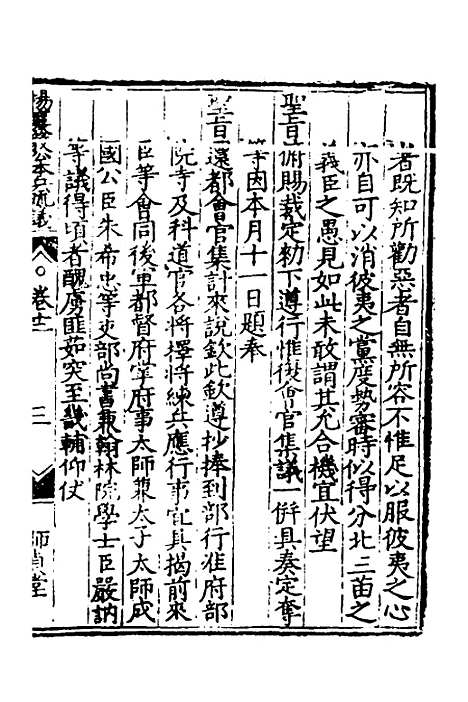 者既知所勸惡者自無所容不惟足以服彼夷之心
亦自可以消彼夷之黨度勢審時似得分北三苗之
義臣之愚見如此未敢謂其允合機宜伏望
聖旨俯賜裁定勑下遵行惟復會官集議一併具奏定奪
等因本月十一日題奉
聖旨還都會官集計來說欽此欽遵抄捧到部行准府部
院寺及科道官各將擇將練兵應行事宜具揭前來
臣等會同後軍都督府掌府事太師兼太子太師成
國公臣朱希忠等吏部尚書兼翰林院學士臣嚴訥
等議得頃者醜虜匪茹突至畿輔仰仗
楊襄毅公本兵疏議 卷十二 三 師貞堂